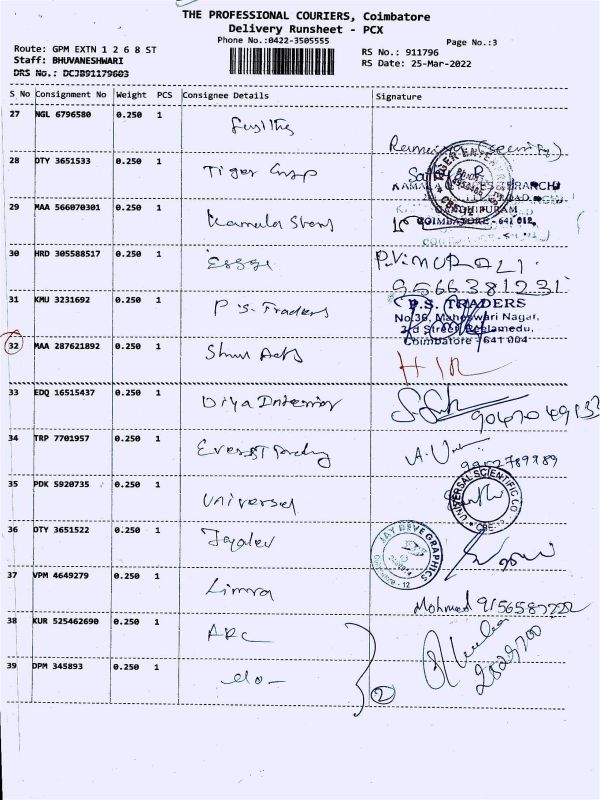 THE PROFESSIONAL COURIERS, Coimbatore
Delivery Runsheet - PCX
Phone No.:0422-3505555
Page No.:3
Route: GPM EXTN 1 2 6 8 ST
Staff: BHUVANESHWARI
DRS No.: DCJB91179603
RS No.: 911796
RS Date: 25-Mar-2022
S No Consignment No Weight PCS Consignee Details Signature
27 NGL 6796580 0.250 1
(security)
28 OTY 3651533 0.250 1 Tiger Ensp
TIGER ENTERPRISES
29 MAA 566070301 0.250 1 Kamala Stores
GANDHIPURAM
COIMBATORE - 641 012
30 HRD 305588517 0.250 1
P.V.MURALI
9566381231
31 KMU 3231692 0.250 1 P.S. Traders
P.S. TRADERS
No.36, Maheswari Nagar,
3rd Street, Peelamedu,
Coimbatore - 641 004
32 MAA 287621892 0.250 1 Shun Arts
33 EDQ 16515437 0.250 1 Diya Interior
34 TRP 7701957 0.250 1 Everest
9952789889
35 PDK 5920735 0.250 1 Universal
UNIVERSAL SCIENTIFIC CO
CBE-12
36 OTY 3651522 0.250 1 Jaydev
JAY DEVE GRAPHICS
Coimbatore - 12
37 VPM 4649279 0.250 1 Limra
Mohmed
38 KUR 525462690 0.250 1 ARC
39 DPM 345893 0.250 1 -do-
2